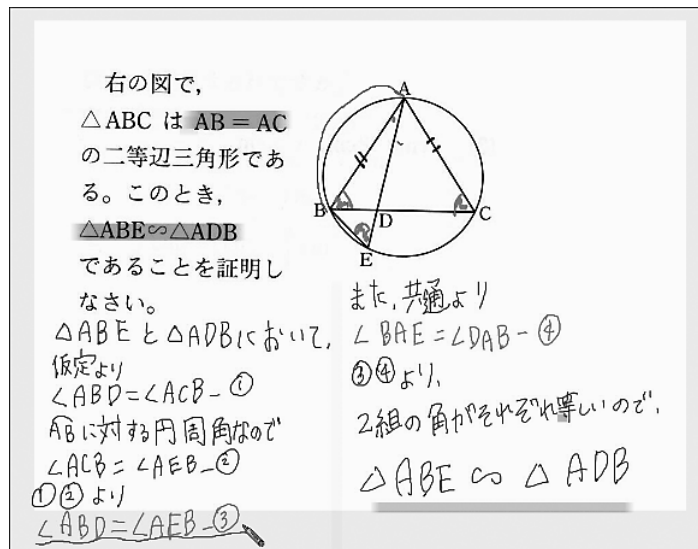 右の図で，
△ABC は AB＝AC
の二等辺三角形であ
る。このとき，
△ABE∽△ADB
であることを証明し
なさい。
A
B
D
C
E
△ABEと△ADBにおいて、
仮定より
∠ABD=∠ACB-①
ABに対する円周角なので
∠ACB=∠AEB-②
①②より
∠ABD=∠AEB-③
また、共通より
∠BAE=∠DAB-④
③④より、
2組の角がそれぞれ等しいので、
△ABE∽△ADB